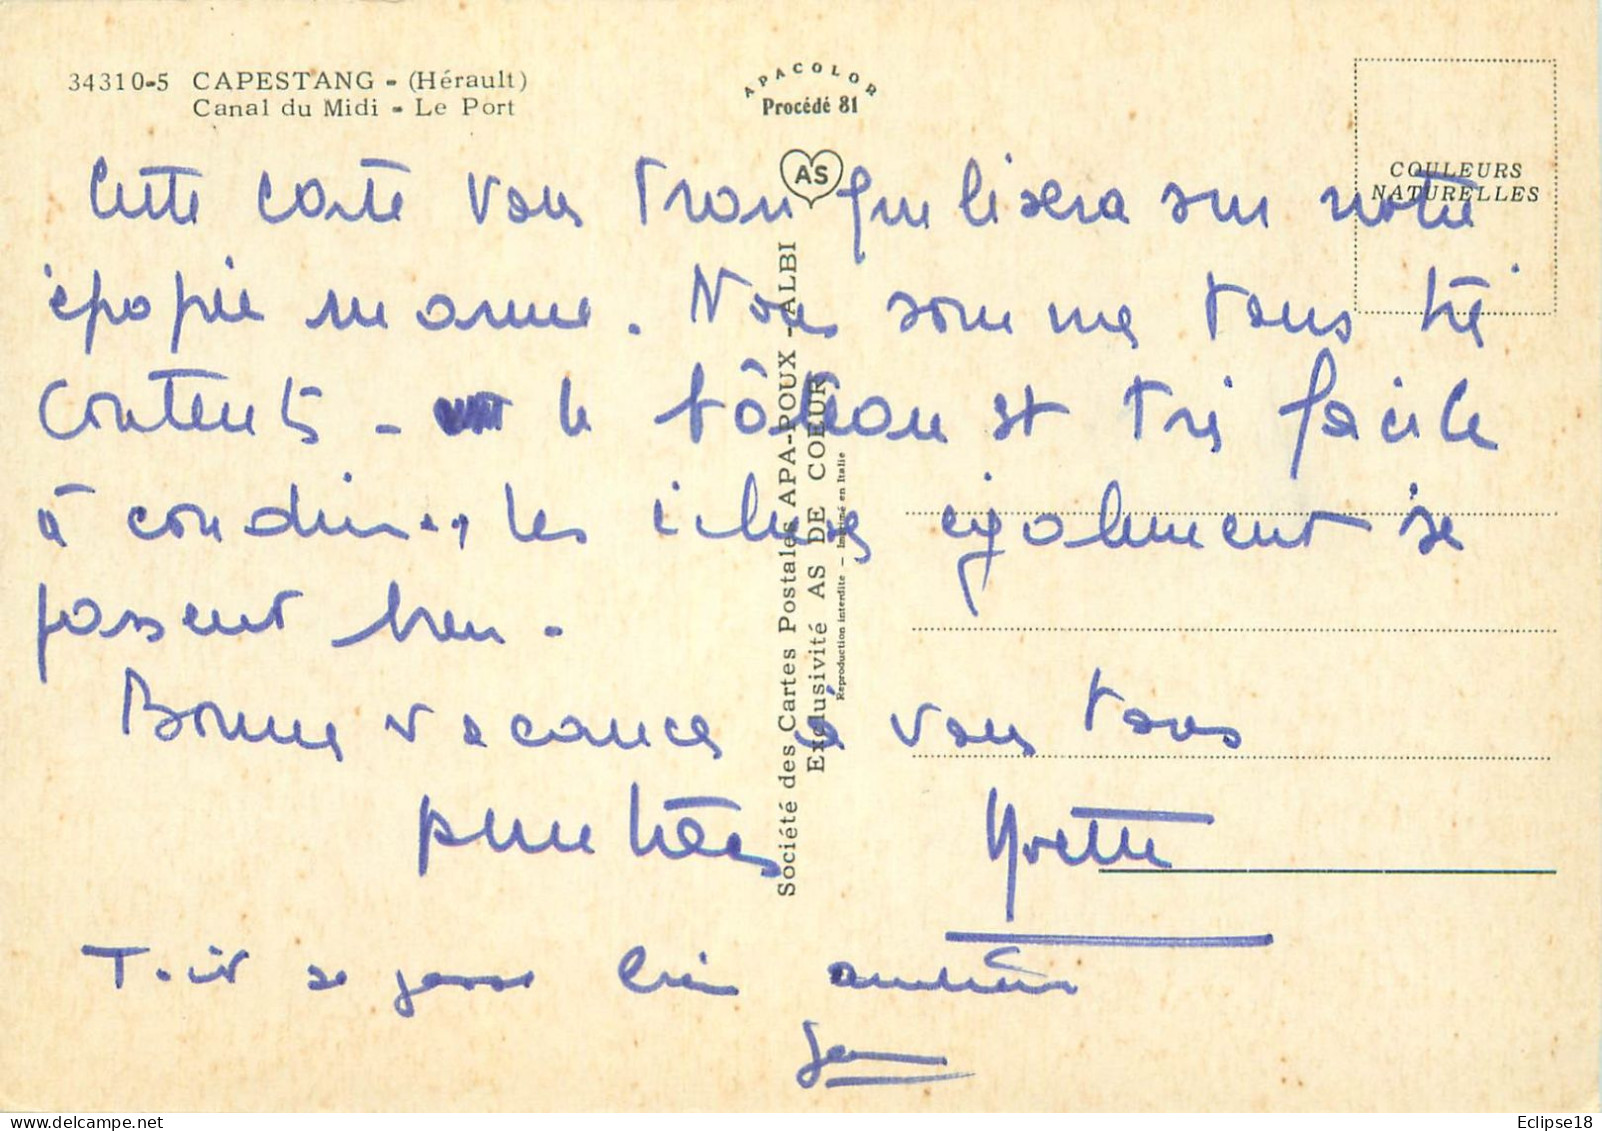 34310-5 CAPESTANG - (Hérault)
Canal du Midi - Le Port
APACOLOR
Procédé 81
AS
COULEURS
NATURELLES
Société des Cartes Postales APA-POUX - ALBI
Exclusivité AS DE COEUR
Reproduction interdite - Imprimé en Italie
Cette carte vous tranquilisera sur notre
épopée marine. Nous sommes tous très
contents - le bâteau est très facile
à conduire.., les écluses également se
passent bien.
Bonne vacances à vous tous
Yvette
Tout se passe bien
delcampe.net
Eclipse18